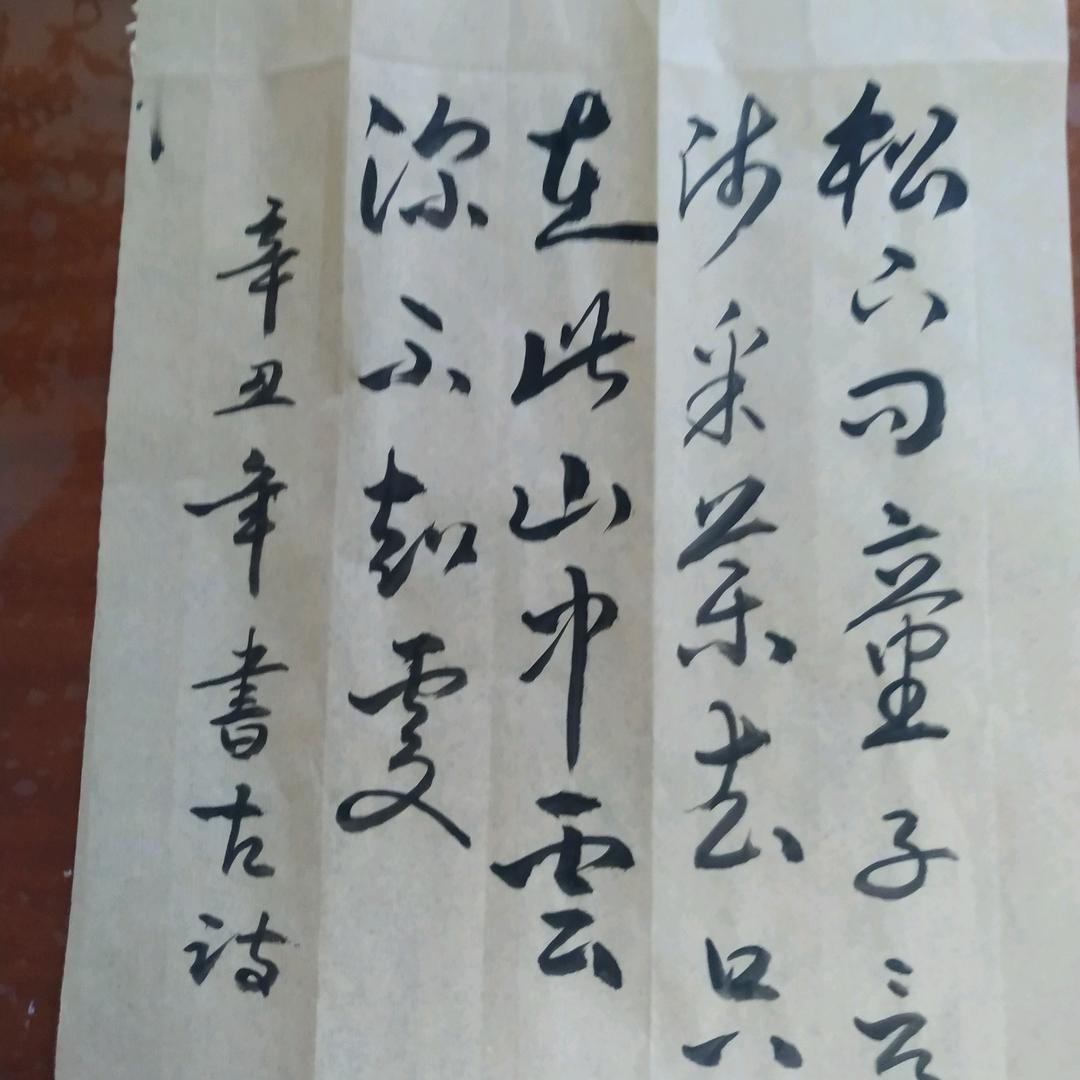 松下問童子言
師采藥去只
在此山中雲
深不知處
辛丑年書古詩